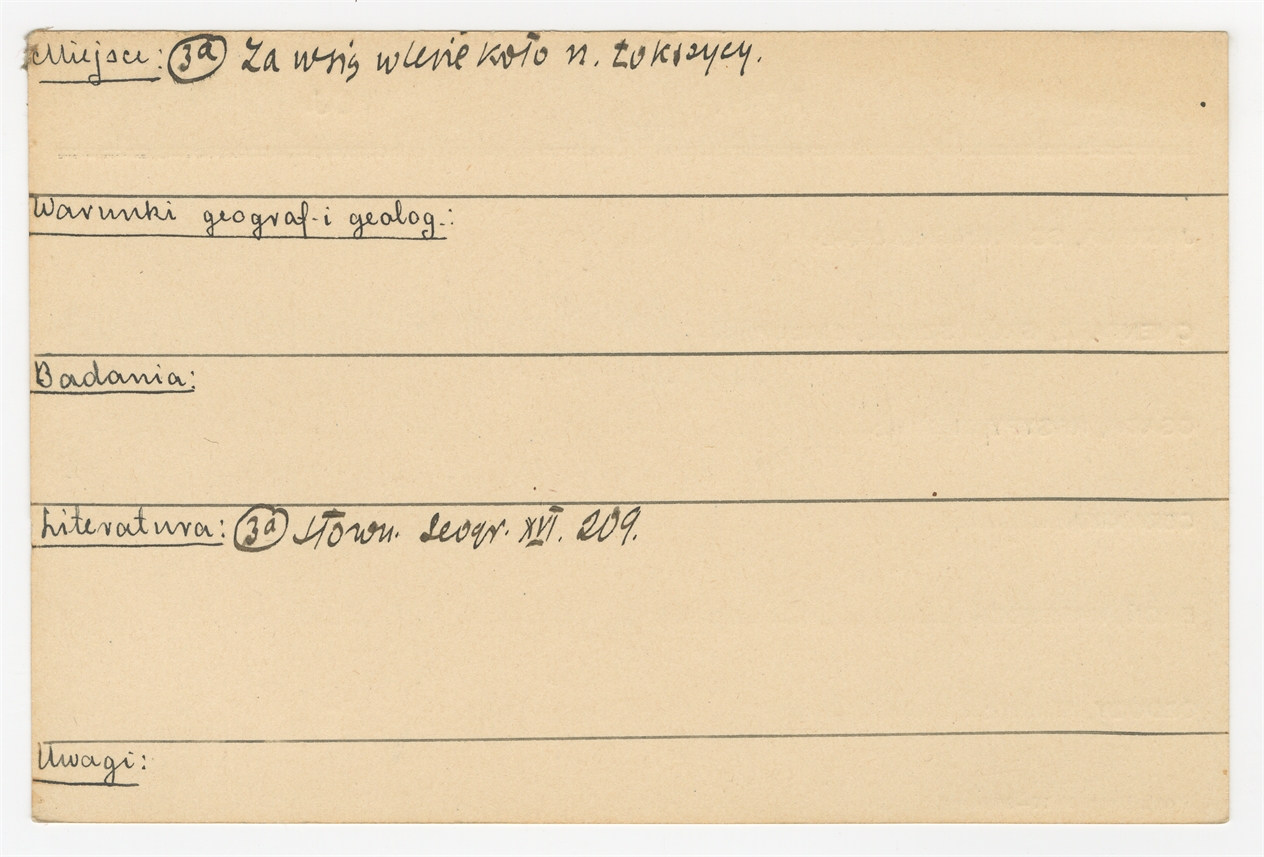 Miejsce: 3a Za wsią w lesie koło n. Łokszycy.
Warunki geograf. i geolog.:
Badania:
Literatura: 3a Słown. Geogr. XVI. 209.
Uwagi: